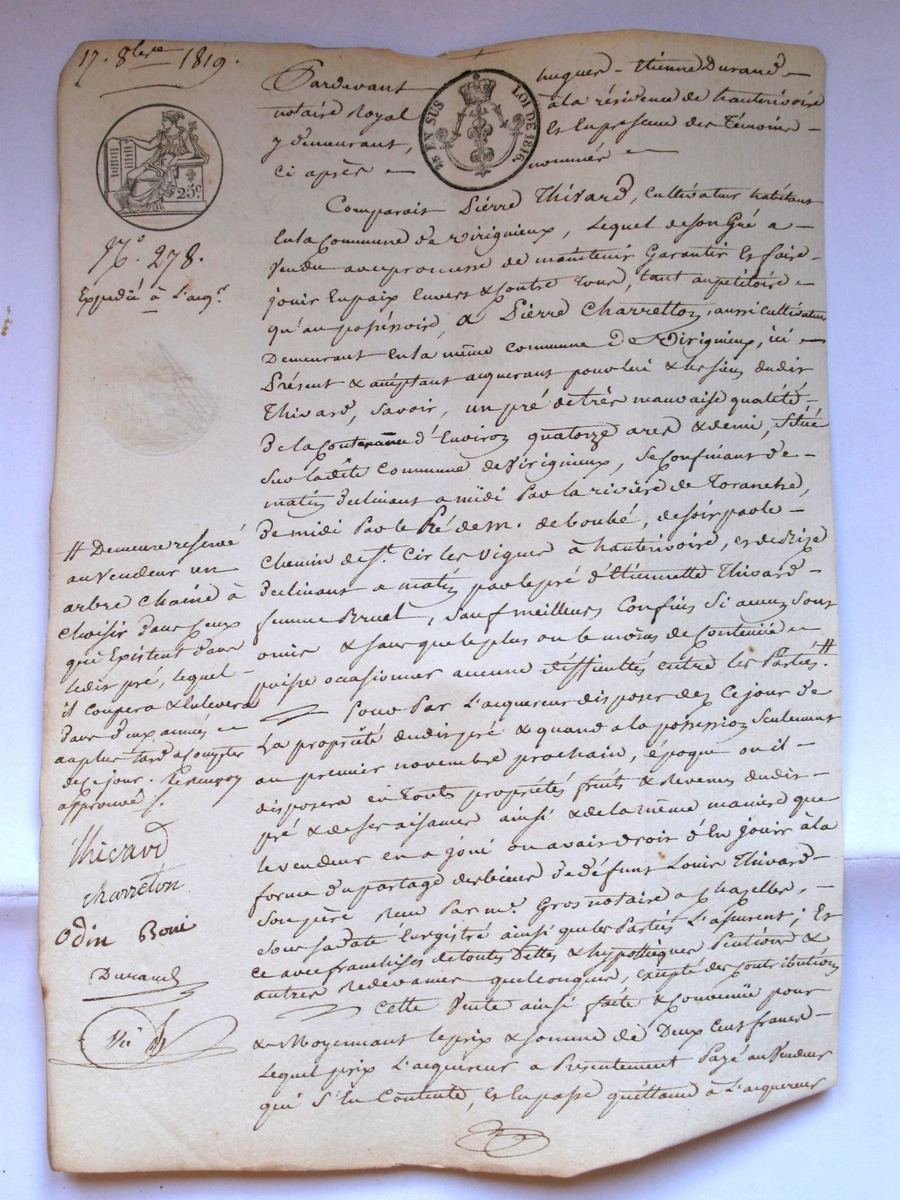 17. 8bre 1819.
Pardevant hugues-Etienne Durand
notaire Royal à la résidence de hauterivoire
y demeurant, Et En presence des Témoins
ci après nommés
25 c
25 EN SUS LOI DE 1816.
N.o 278.
Expedié à L'acqr
Comparait Pierre Thivard, Cultivateur habitant
En la Commune de virignieux, Lequel de son Gré a
Vendu avec promesse de maintenir Garantir Et faire
jouir En paix Envers & Contre Tous, tant au petitoire
qu'au possessoire, a Pierre Charretton, aussi Cultivateur
Demeurant En la même Commune De Virignieux, ici
Présent & acceptant acquerant pour lui & les siens dudit
Thivard, Savoir, un pré de très mauvaise qualité
De la Contenance d'Environ quatorze ares & demi, situé
Sur la dite Commune de Virignieux, Se Confinant De
matin declinant a midi Par la rivière de Toranche,
De midi Par le Pré de m. de boubé, de soir par le
Chemin de St. Cir les Vignes à hauterivoire, et de bize
Declinant a matin par le pré d'Etiennette Thivard
femme Bruel, Sauf meilleurs Confins Si aucuns Sont
omis & sans que le plus ou le moins de Contenue
puisse occasioner aucune difficultés entre les Parties. #
Pour Par L'acquereur disposer dez Ce jour de
La propriété dudit pré & quand a la possession Seulement
au premier novembre prochain, époque ou il
disposera en Toute propriété fruits & Revenus dudit
pré & de ses aisances ainsi & de la même manière que
le vendeur en a joui ou avait Droit d'En jouir à la
forme du partage des biens de défunt Louis Thivard
Son père Reçu Par me. Gros notaire a Chazelles,
Sous Sa date Enregistré ainsi que les Parties L'assurent; Et
ce avec franchises de toutes Dettes & hypothèques Pentions &
autres Redevances quelconques, excepté des Contributions
Cette Vente ainsi faite & Convenue pour
& Moyennant le prix & Somme de Deux Cent francs
Lequel prix L'acquereur a Presentement Payé au Vendeur
qui S'En Contente, et En passe quittance à L'acquereur
# Demeure reservé
au Vendeur un
arbre Chaine à
Choisir dans Ceux
qui Existent dans
ledit pré, lequel
il Coupera & Enlevera
dans deux années
au plus tard a Compter
de Ce jour. le renvoy
approuvé
Thivard
charreton
Odin Boni
Durand